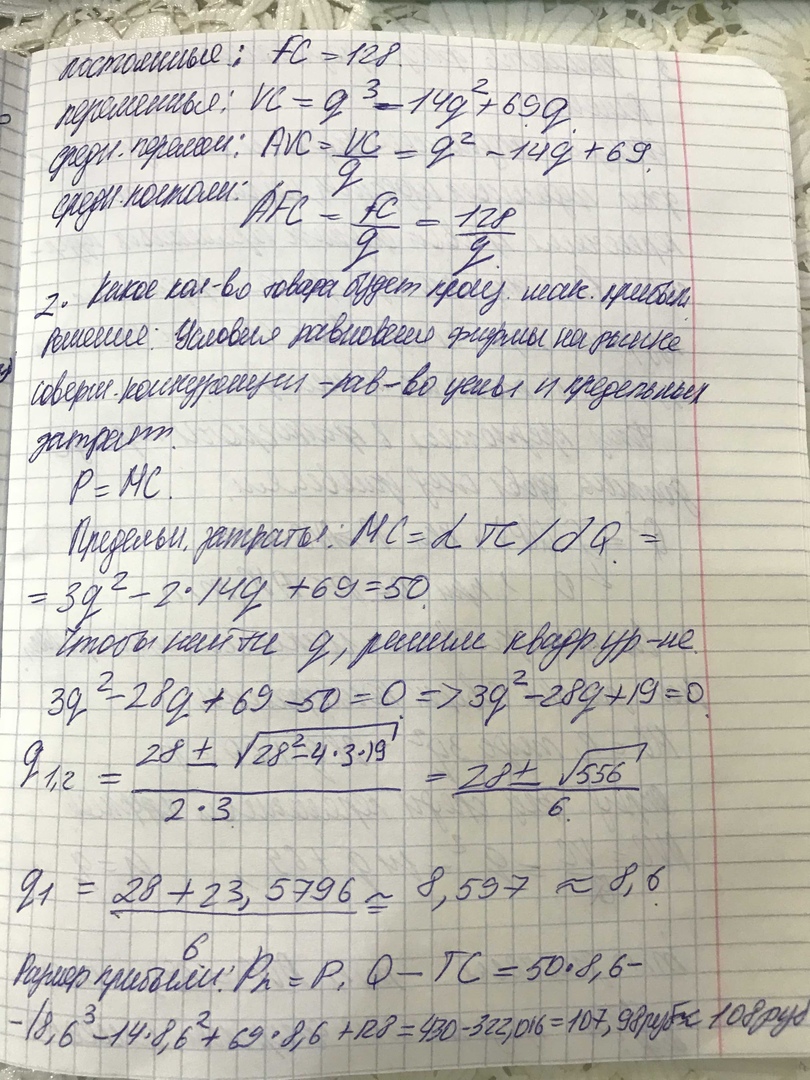 постоянные: FC = 128
переменные: VC = q³ - 14q² + 69q
средн. перемен: AVC = VC/q = q² - 14q + 69.
средн. постоян: AFC = FC/q = 128/q
2. Какое кол-во товара будет произ. мак. прибыл.
Решение: Условия равновесия фирмы на рынке
соверш. конкуренции - рав-во цены и предельных
затрат.
P = MC.
Предельн. затраты: MC = dTC/dQ =
= 3q² - 2·14q + 69 = 50
Чтобы найти q, решим квадр ур-не.
3q² - 28q + 69 - 50 = 0 => 3q² - 28q + 19 = 0
q1,2 = (28 ± √(28² - 4·3·19))/(2·3) = (28 ± √556)/6.
q1 = (28 + 23,5796)/6 ≃ 8,597 ≈ 8,6
Размер прибыли: Pn = P. Q - TC = 50·8,6 -
- (8,6³ - 14·8,6² + 69·8,6 + 128 = 430 - 322,016 = 107,98 руб ≈ 108 руб